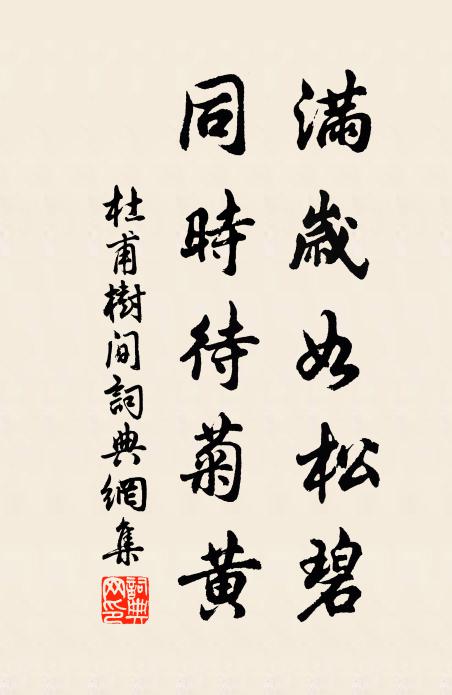 滿歲如松碧
同時待菊黃
杜甫樹間詞典網集
詞典網印